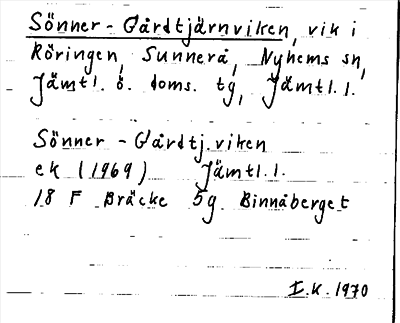 Sönner-Gårdtjärnviken, vik i
Röringen, Sunnerå, Nyhems sn,
Jämtl. ö. doms. tg, Jämtl. l.
Sönner-Gårdtj.viken
ek (1969) Jämtl. l.
18 F Bräcke 5g Binnåberget
I.K. 1970